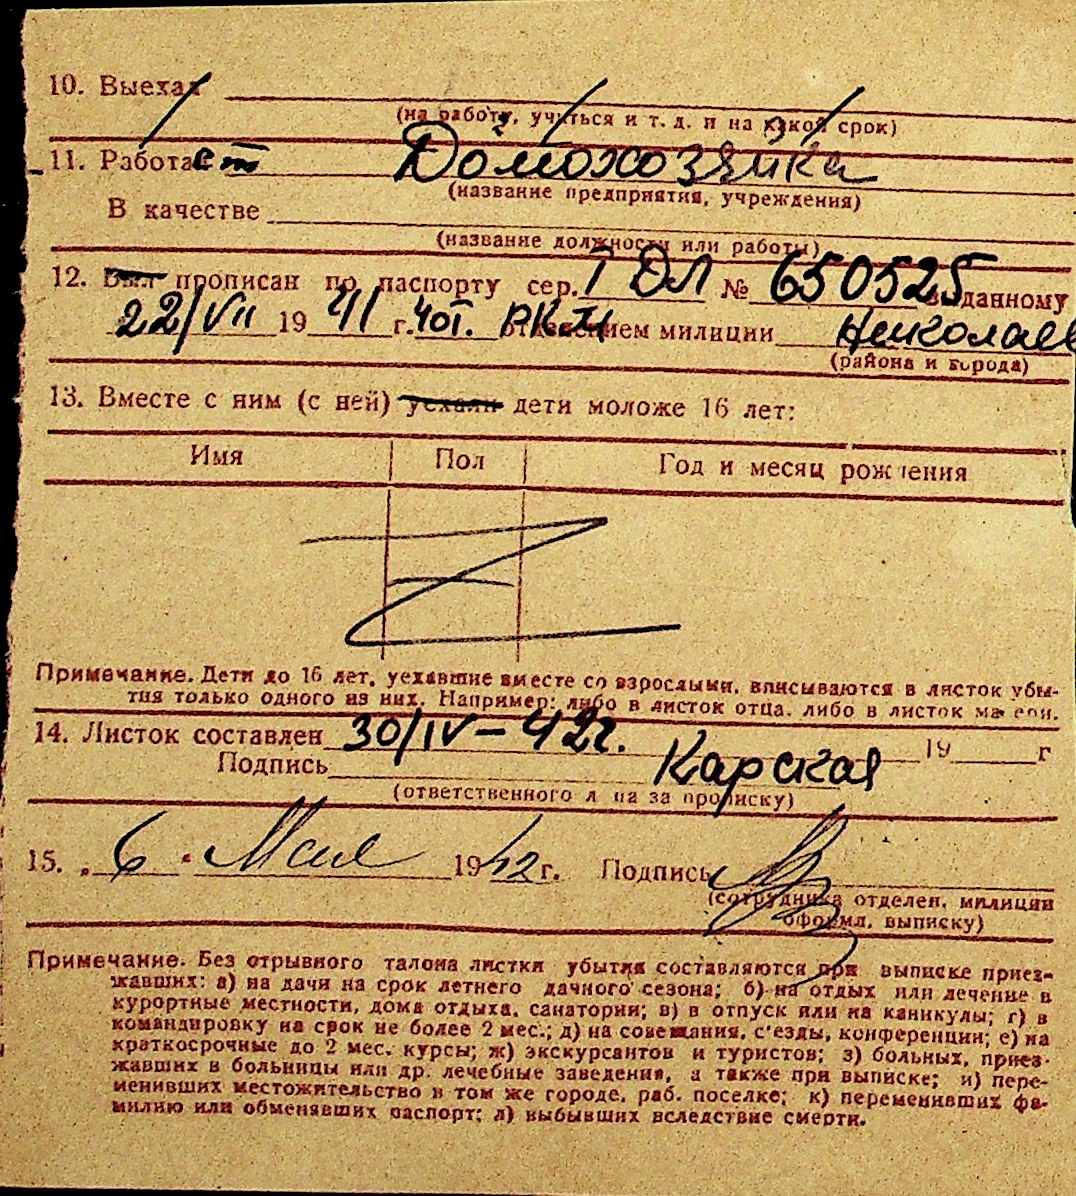 10. Выехал
(на работу, учиться и т. д. и на какой срок)
11. Работает Домохозяйка
(название предприятия, учреждения)
В качестве
(название должности или работы)
12. Был прописан по паспорту сер. I ДЛ № 650525 выданному
22/VII 1941 г. 4 от. РКМ отделением милиции
(района и города)
13. Вместе с ним (с ней) уехали дети моложе 16 лет:
Имя Пол Год и месяц рождения
Примечание. Дети до 16 лет, уехавшие вместе со взрослыми, вписываются в листок убы-
тия только одного из них. Например: либо в листок отца, либо в листок матери.
14. Листок составлен 30/IV – 42 г. 19 г
Подпись Карская
(ответственного лица за прописку)
15. „ 6 " Мая 1942 г. Подпись
(сотрудника отделен. милиции
оформл. выписку)
Примечание. Без отрывного талона листки убытия составляются при выписке приез-
жавших: а) на дачи на срок летнего дачного сезона; б) на отдых или лечение в
курортные местности, дома отдыха, санатории; в) в отпуск или на каникулы; г) в
командировку на срок не более 2 мес.; д) на совещания, с'езды, конференции; е) на
краткосрочные до 2 мес. курсы; ж) экскурсантов и туристов; з) больных, приез-
жавших в больницы или др. лечебные заведения, а также при выписке; и) пере-
менивших местожительство в том же городе, раб. поселке; к) переменивших фа-
милию или обменявших паспорт; л) выбывших вследствие смерти.